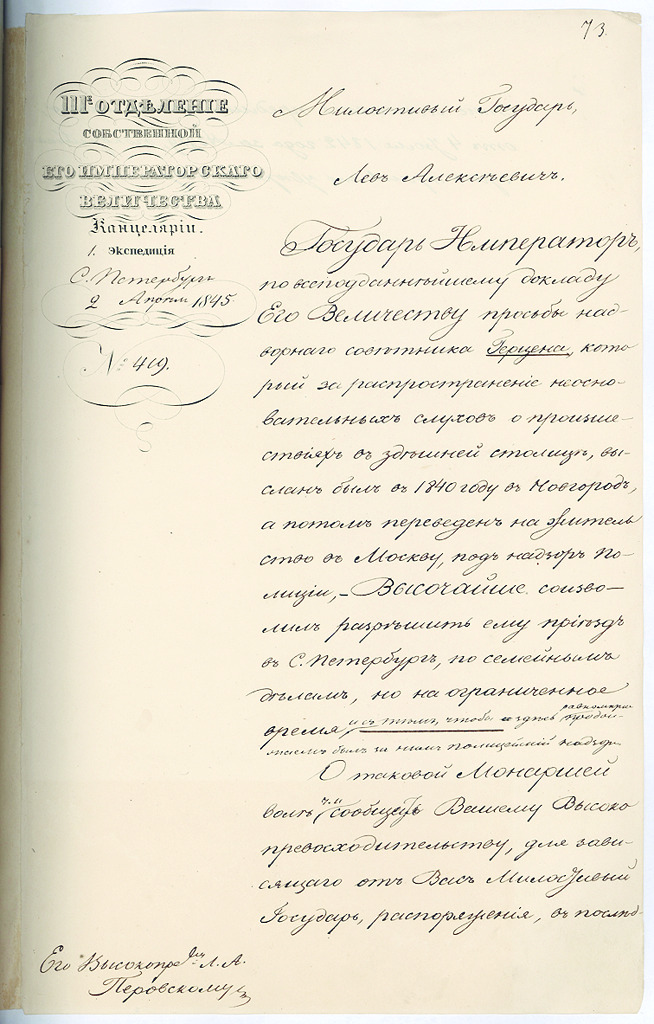 73.
III Е ОТДѢЛЕНІЕ
СОБСТВЕННОЙ
ЕГО ИМПЕРАТОРСКАГО
ВЕЛИЧЕСТВА
Канцеляріи.
1. Экспедиція
С. Петербургъ
2 Апрѣля 1845
№ 419.
Милостивый Государь,
Левъ Алексѣевичъ.
Государь Императоръ,
по всеподданнѣйшему докладу
Его Величеству просьбы над-
ворнаго совѣтника Герцена, кото
рый за распространеніе неосно-
вательныхъ слуховъ о произше-
ствіяхъ въ здѣшней столицѣ, вы-
сланъ былъ въ 1840 году въ Новгородъ,
а потомъ переведенъ на житель
ство въ Москву, подъ надзоръ по-
лиціи, – Высочайше соизво-
лилъ разрѣшить ему пріѣздъ
въ С. Петербургъ, по семейнымъ
дѣламъ, но на ограниченное
время, и съ тѣмъ, чтобы и здѣсь равномѣрно
былъ за нимъ полицейскій надзоръ
О таковой Монаршей
волѣ сообщ Вашему Высоко
превосходительству, для зави-
сящаго отъ Васъ Милостивый
Государь, распоряженія, въ послѣд-
Его Высокопрев Л. А.
Перовскому